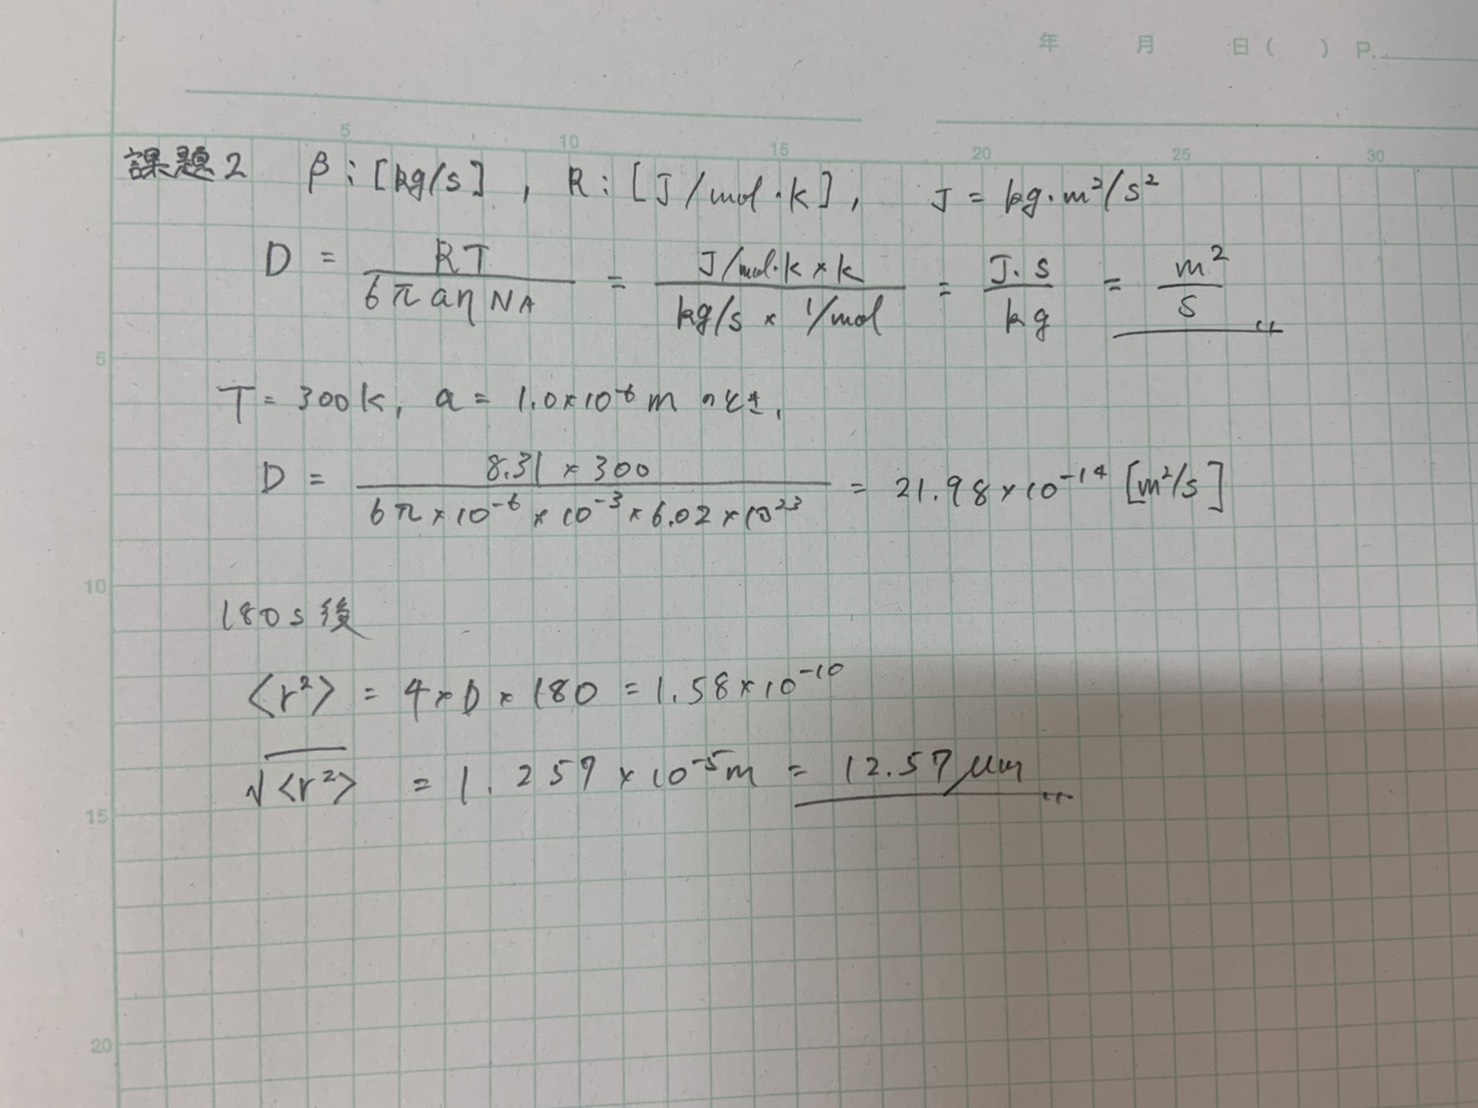 年 月 日( ) P.
5 10 15 20 25 30
課題2 β:[kg/s], R:[J/mol・k], J = kg・m²/s²
D = RT / 6πaηNA = J/mol・k×k / kg/s × 1/mol = J・s / kg = m² / s
5
T = 300k, a = 1.0×10⁻⁶ m のとき,
D = 8.31 × 300 / 6π×10⁻⁶×10⁻³×6.02×10²³ = 21.98×10⁻¹⁴ [m²/s]
10
180s後
<r²> = 4×D×180 = 1.58×10⁻¹⁰
√<r²> = 1.257×10⁻⁵m = 12.57μm
15
20